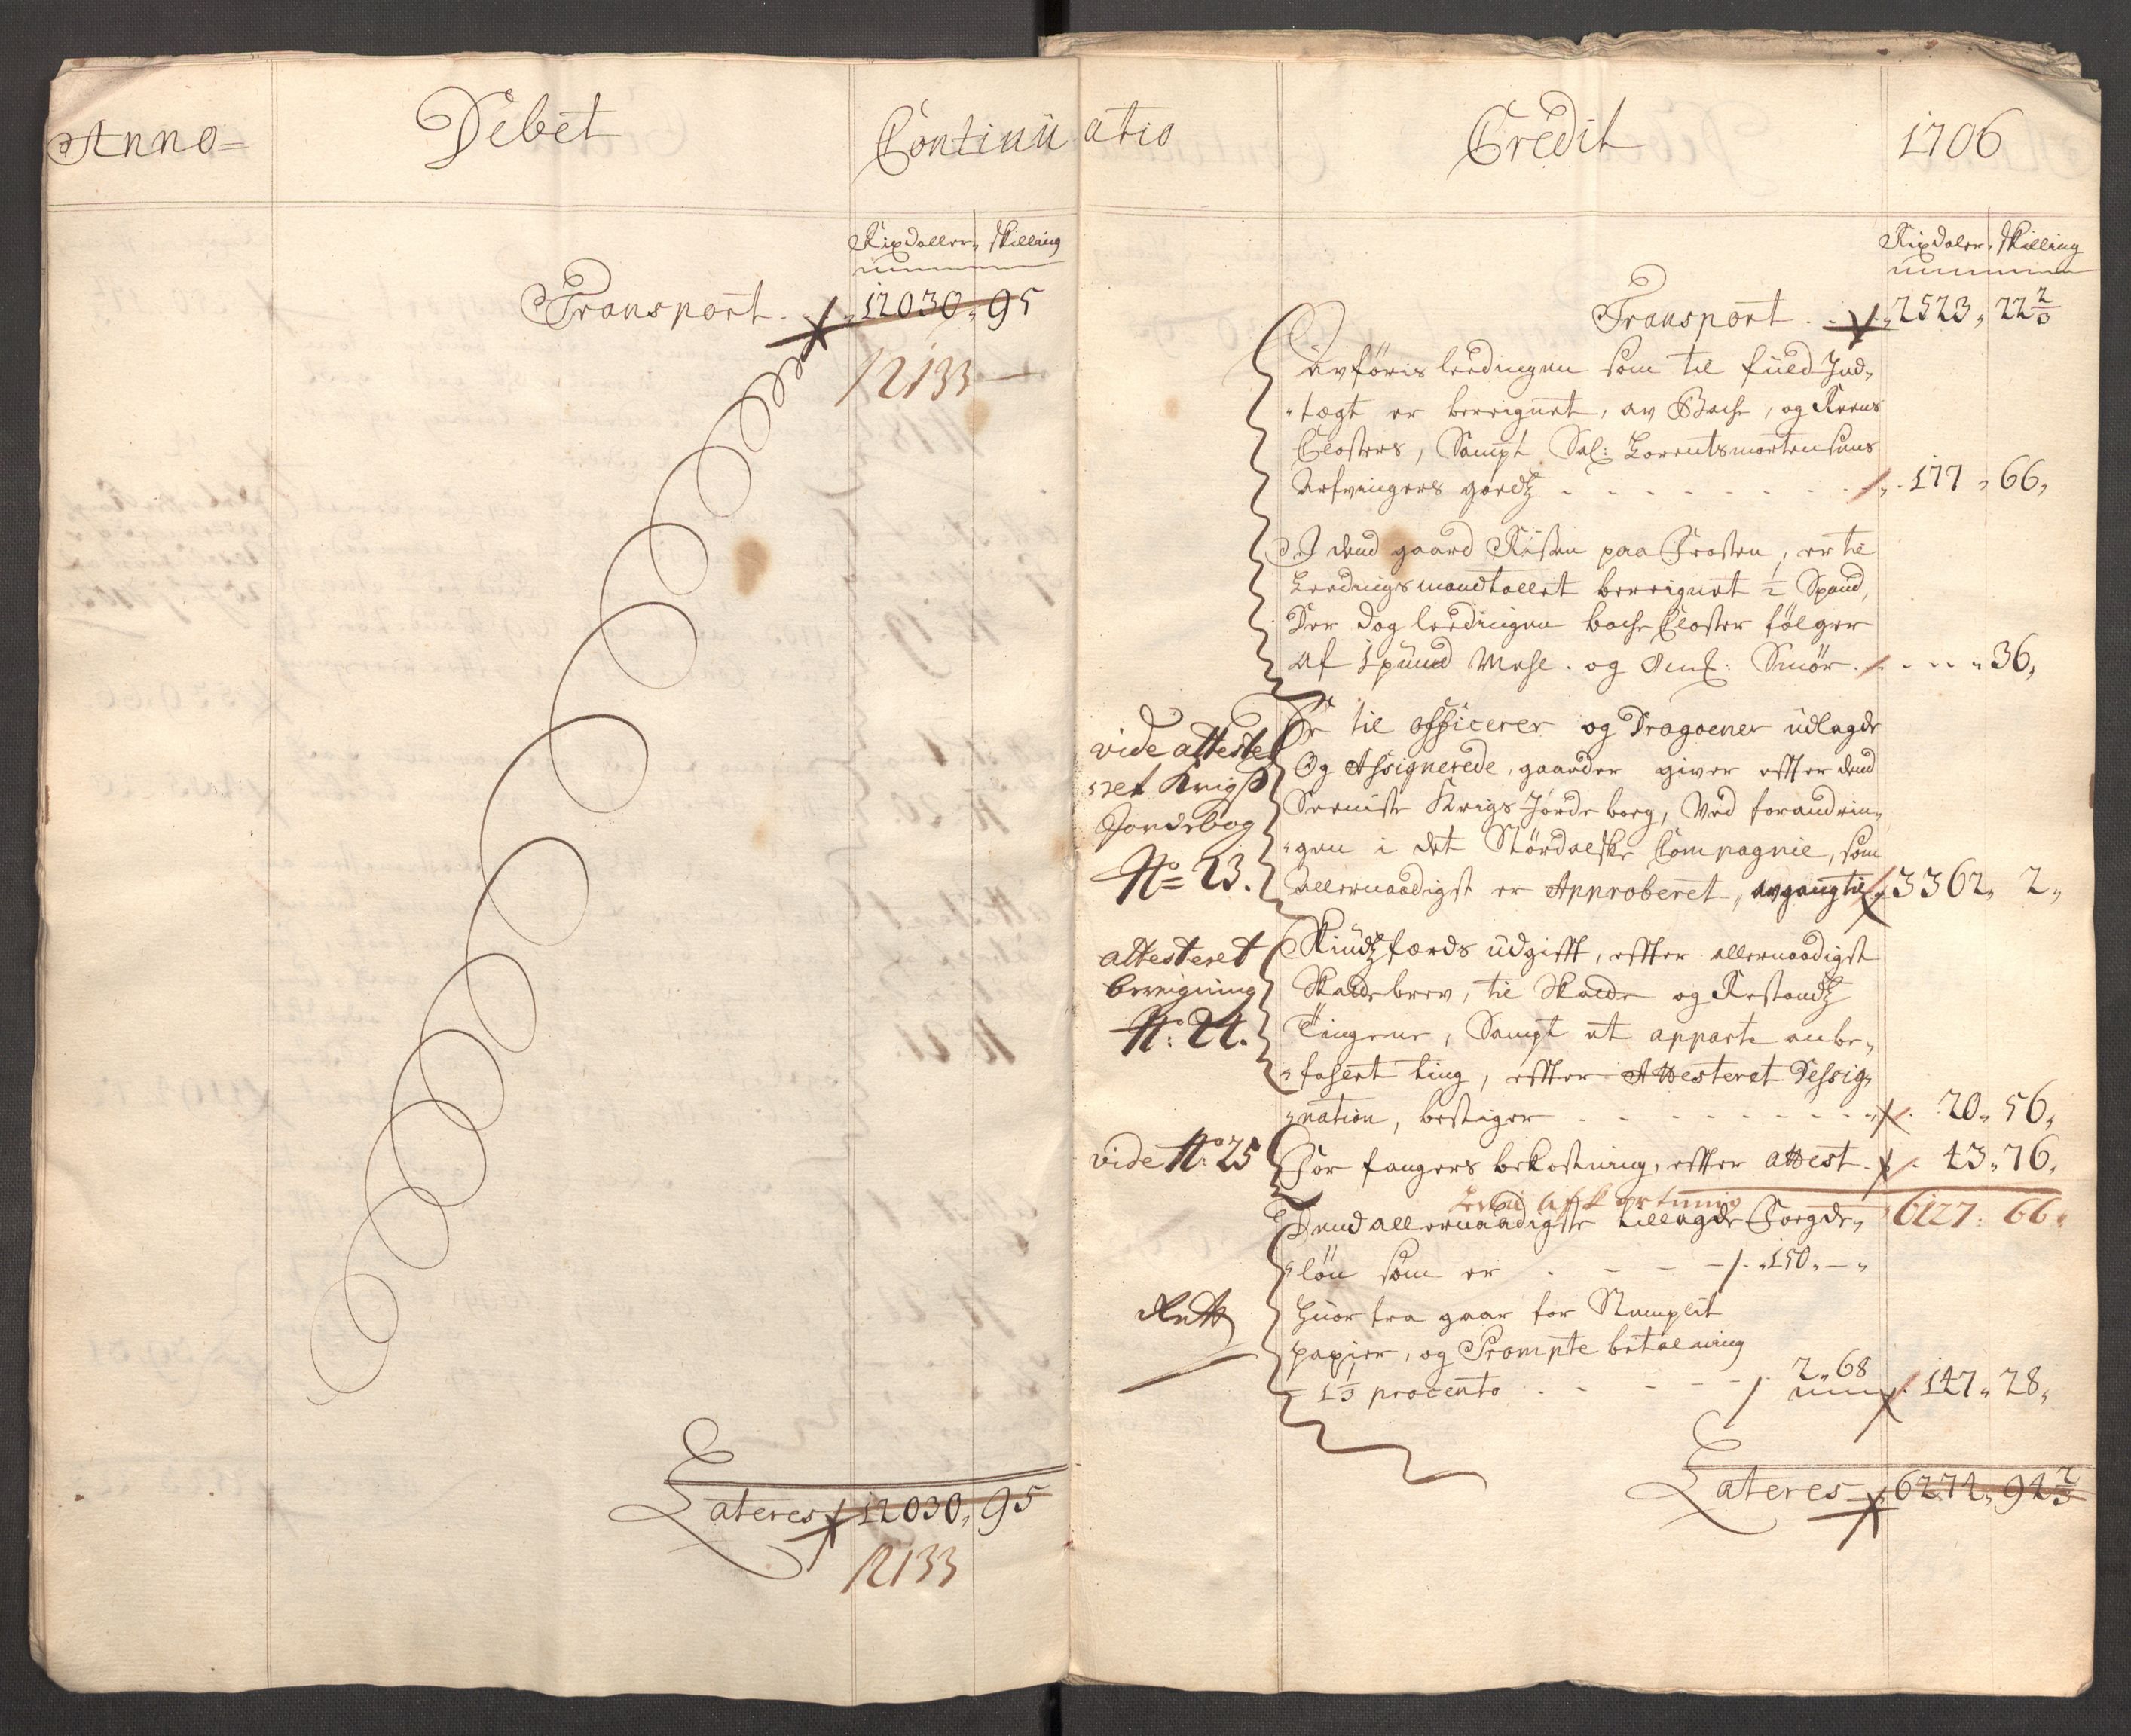 Anno
Debet
Continu
Rixdaller, skilling
Transport . . 12030, 95
12133 —
Lateres 12030, 95
12133
atio
Credit
1706
Rixdaler, skilling
Transport . . 2523, 22 2/3
Avföris leedingen som til fuld Ind„
„tægt er bereignet, av Bache, og Reens
Closters, Sampt Sal: Lorentsmortensens
Arfvingers goedtz . . . 177, 66,
I dend gaard Risten paa Frosten, er til
Leedings mandtallet bereignet ½ Spand,
Der dog leedingen bache Closter fölger
af 1 pund Mehl. og Smör . . . 36,
vide atteste„
ret Krigs
Jordebog
No 23.
Er til officerer og Dragoener udlagde
Og Assignerede, gaarder giver efter dend
Seeniste Krigs Jorde boeg, Ved forandrin„
„gen i det Stördalske Compagnie, som
allernaadigst er Approberet, avgangtil 3362, 2,
attesteret
bereigning
No: 24.
Skiudtzfærds udgifft, effter allernaadigst
Skattebrev, til Skatte og Restandtz
Tingene, Sampt et apparte anbe„
„falhet ting, effter Attesteret Dessig„
„nation, bestiger . . . 20, 56,
vide No: 25
For fangers bekostning, effter attest . 43, 76,
6127: 66.
Dend allernaadigste tillagde Foegde„
„lön som er . . . 150, — „
Rett
huor fra gaar for Stemplit
papier, og Prompte betalning
1⅓ procento . . . 2, 68 147, 28,
Lateres 6274, 94 2/3